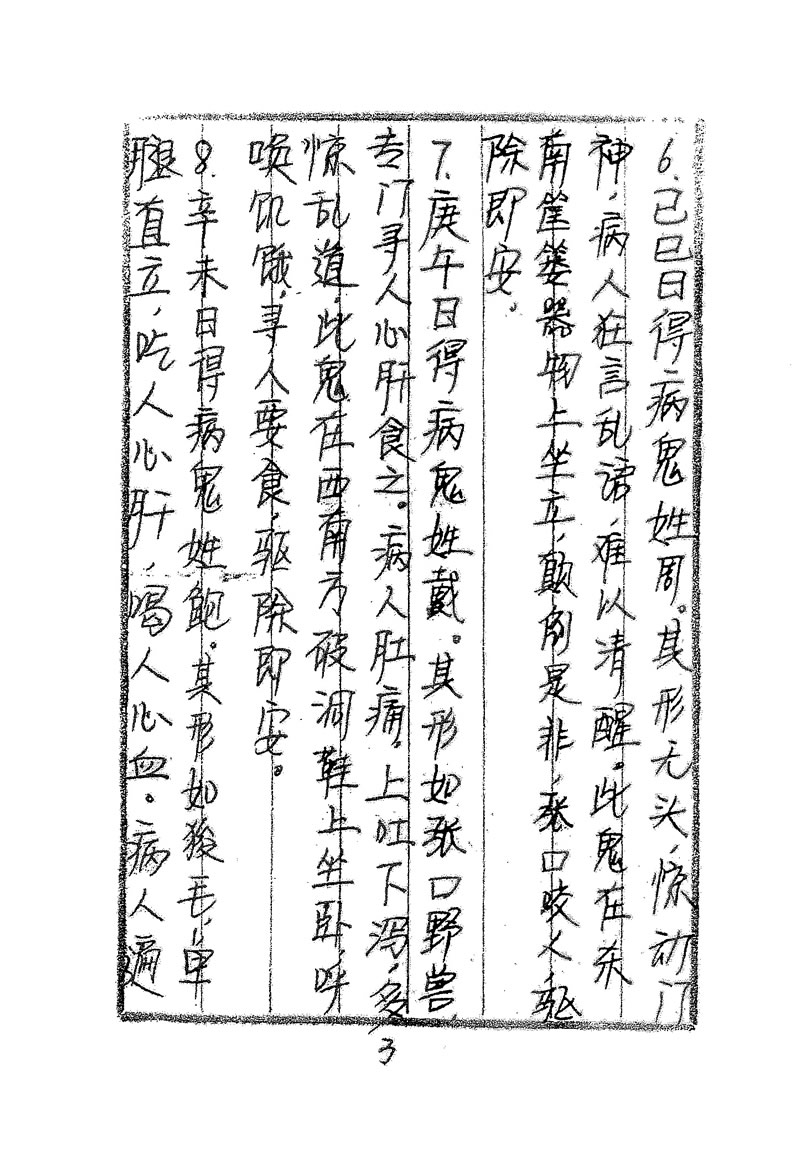 6.己巳日得病鬼姓周。其形无头,惊动门
神,病人狂言乱语,难以清醒。此鬼在东
南筐篓器物上坐立,颠倒是非,张口咬人,驱
除即安。
7.庚午日得病鬼姓戴。其形如张口野兽,
专门寻人心肝食之。病人肚痛。上吐下泻,多
惊乱道,此鬼在西南方破洞鞋上坐卧,呼
唤饥饿,寻人要食,驱除即安。
8.辛未日得病鬼姓鲍。其形如猴毛,单
腿直立,吃人心肝,喝人心血。病人遍
3